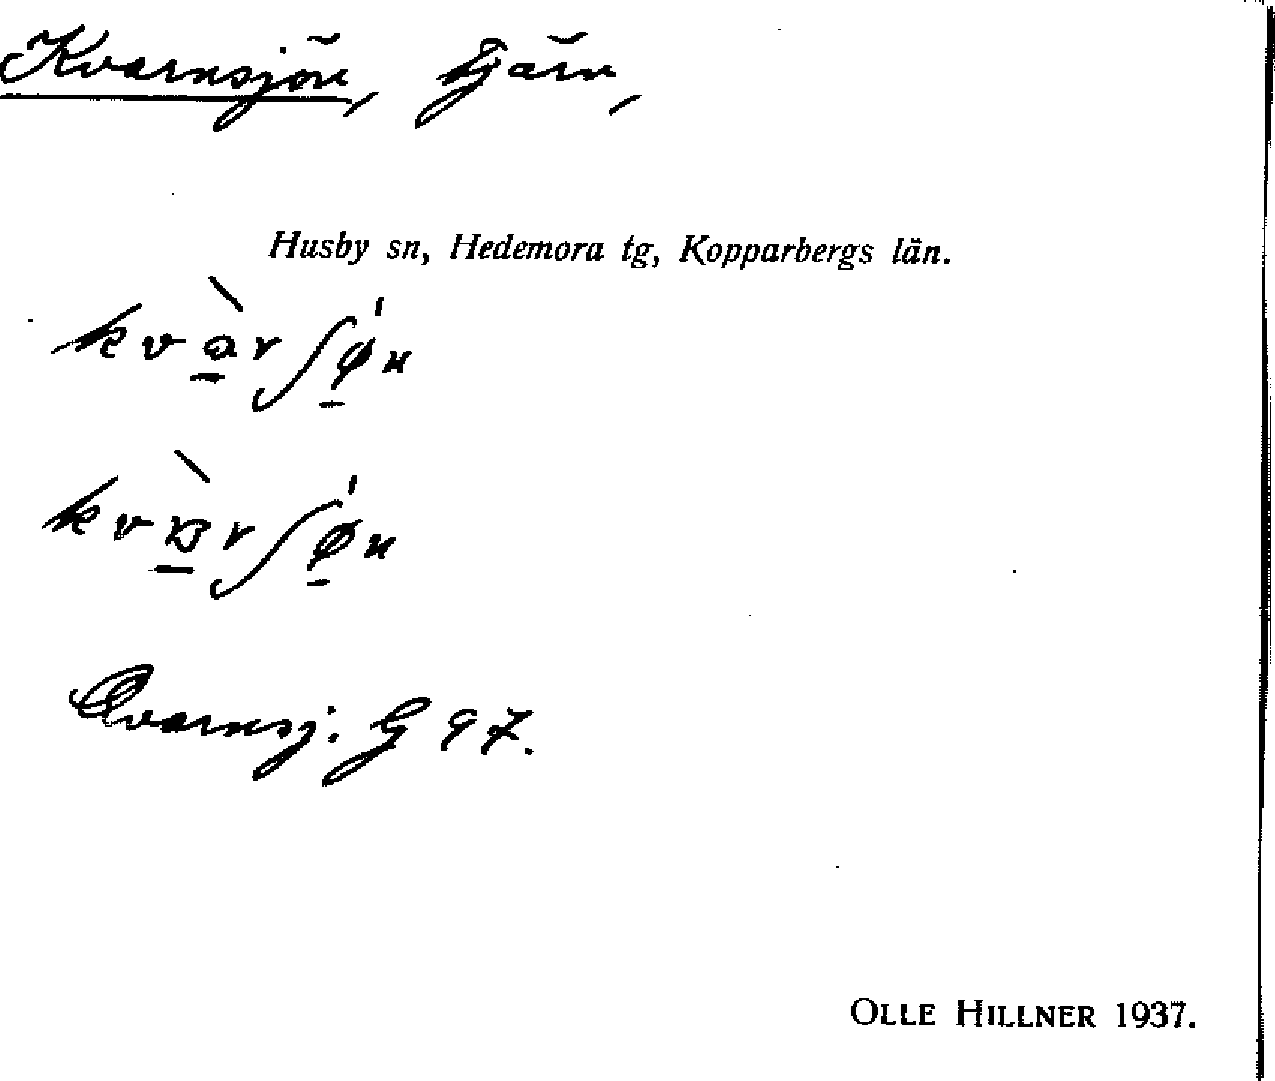 Kvarnsjön, tjärn,
Husby sn, Hedemora tg, Kopparbergs län.
Qvarnsj. G 97.
OLLE HILLNER 1937.